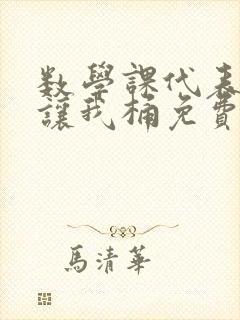 数學課代表
讓我桶免費
馬清華